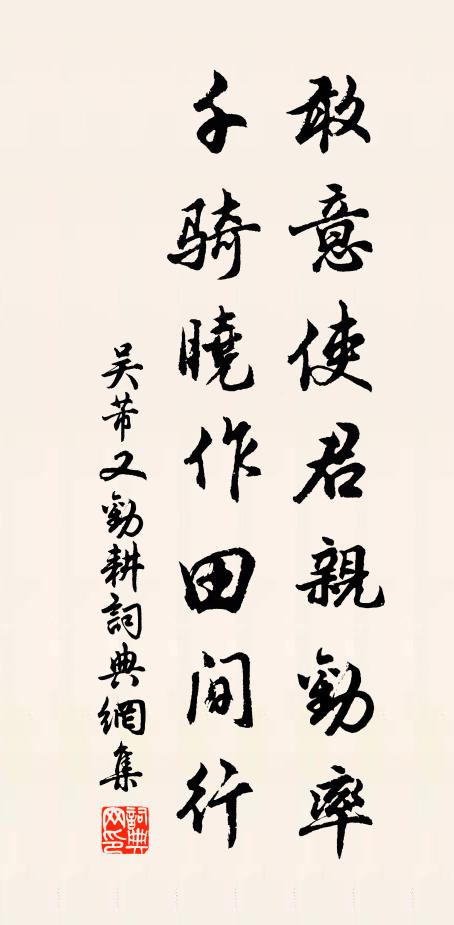 敢意使君親勸率
千騎曉作田間行
吳芾又勸耕詞典網集
詞典網印